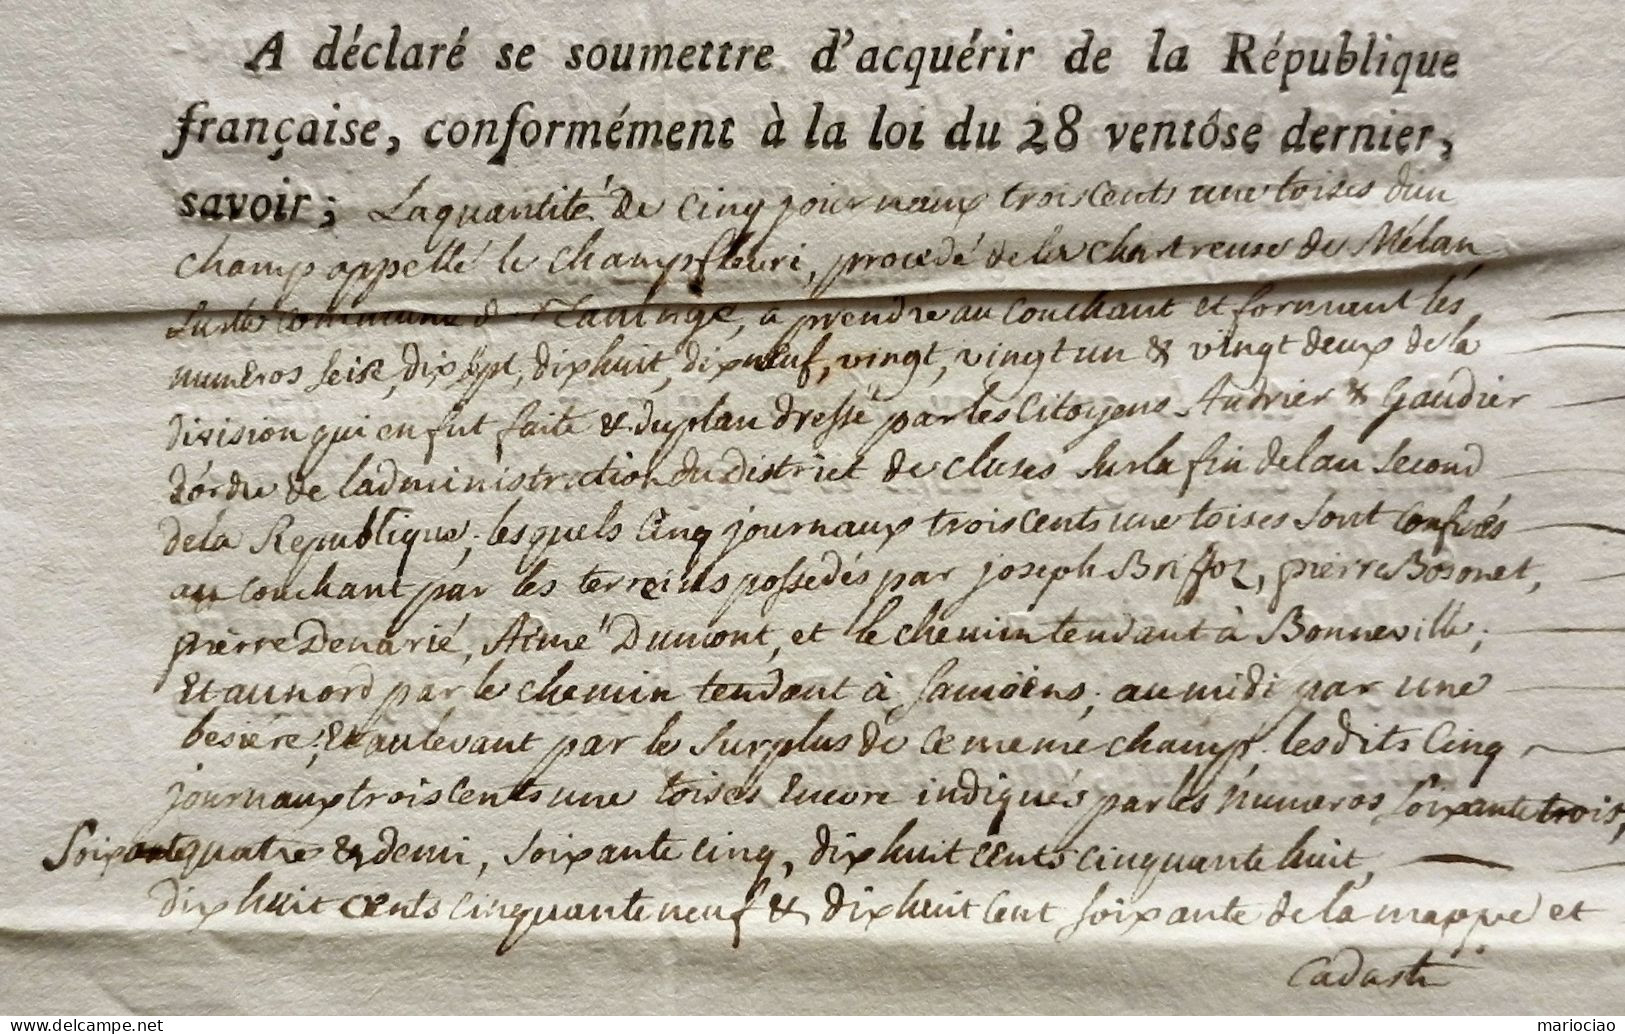 A déclaré se soumettre d'acquérir de la République
française, conformément à la loi du 28 ventôse dernier,
savoir; La quantité de Cinq journaux trois cents une toises d'un
champ appellé le Champfleuri, procedé de la chartreuse de Mélan
Sur la commune de Taninge, a prendre au Couchant et formant les
numeros seise, dix sept, dix huit, dix neuf, vingt, vingt un & vingt deux de la
division qui en fut faite & du plan dressé par les Citoyens Andrier & Gaudier
d'ordre de l'administration du district de cluses sur la fin de l'an second
de la Republique, lesquels Cinq journaux trois cents une toises sont confinés
au Couchant par les terreins possedés par joseph Briffoz, pierre Bosonet,
pierre Denarié, Aimé Dumont, et le chemin tendant à Bonneville;
Et au nord par le chemin tendant à Samoëns, au midi par une
besiére, Et au levant par le Surplus de ce meme champ. les dits Cinq
journaux trois Cents une toises Encore indiqués par les Numeros Soixante trois,
Soixante quatre & demi, soixante cinq, dix huit cents cinquante huit,
dix huit cents cinquante neuf & dix huit cent soixante de la mappe et
Cadastre
mariociao